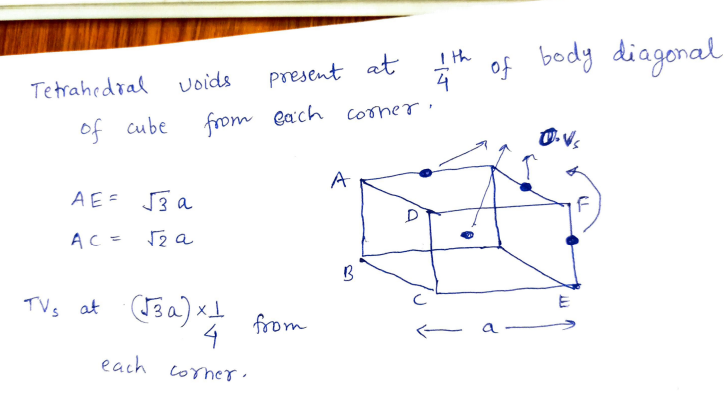 Tetrahedral voids present at 1/4 th of body diagonal
of cube from each corner.
O.Vs
A
F
D
AE = √3 a
AC = √2 a
B
C
E
a
TVs at (√3 a) × 1/4 from
each corner.